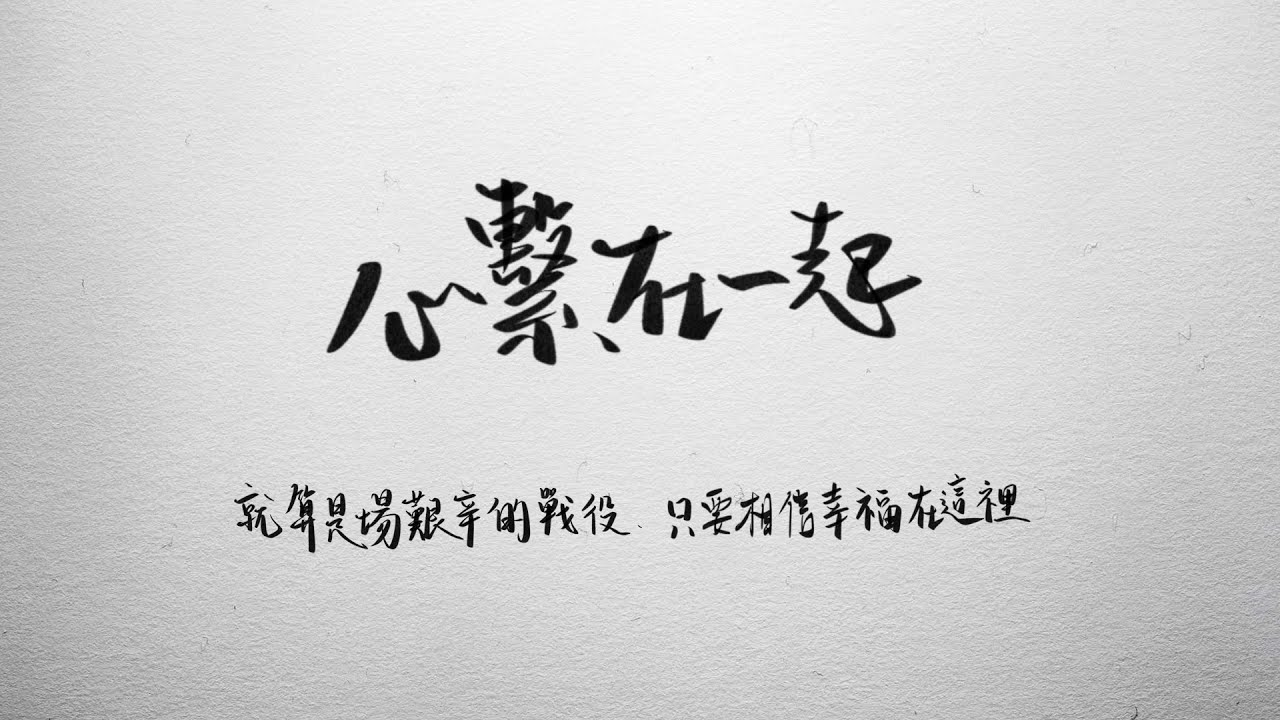 心繫在一起
就算是場艱辛的戰役、只要相信幸福在這裡